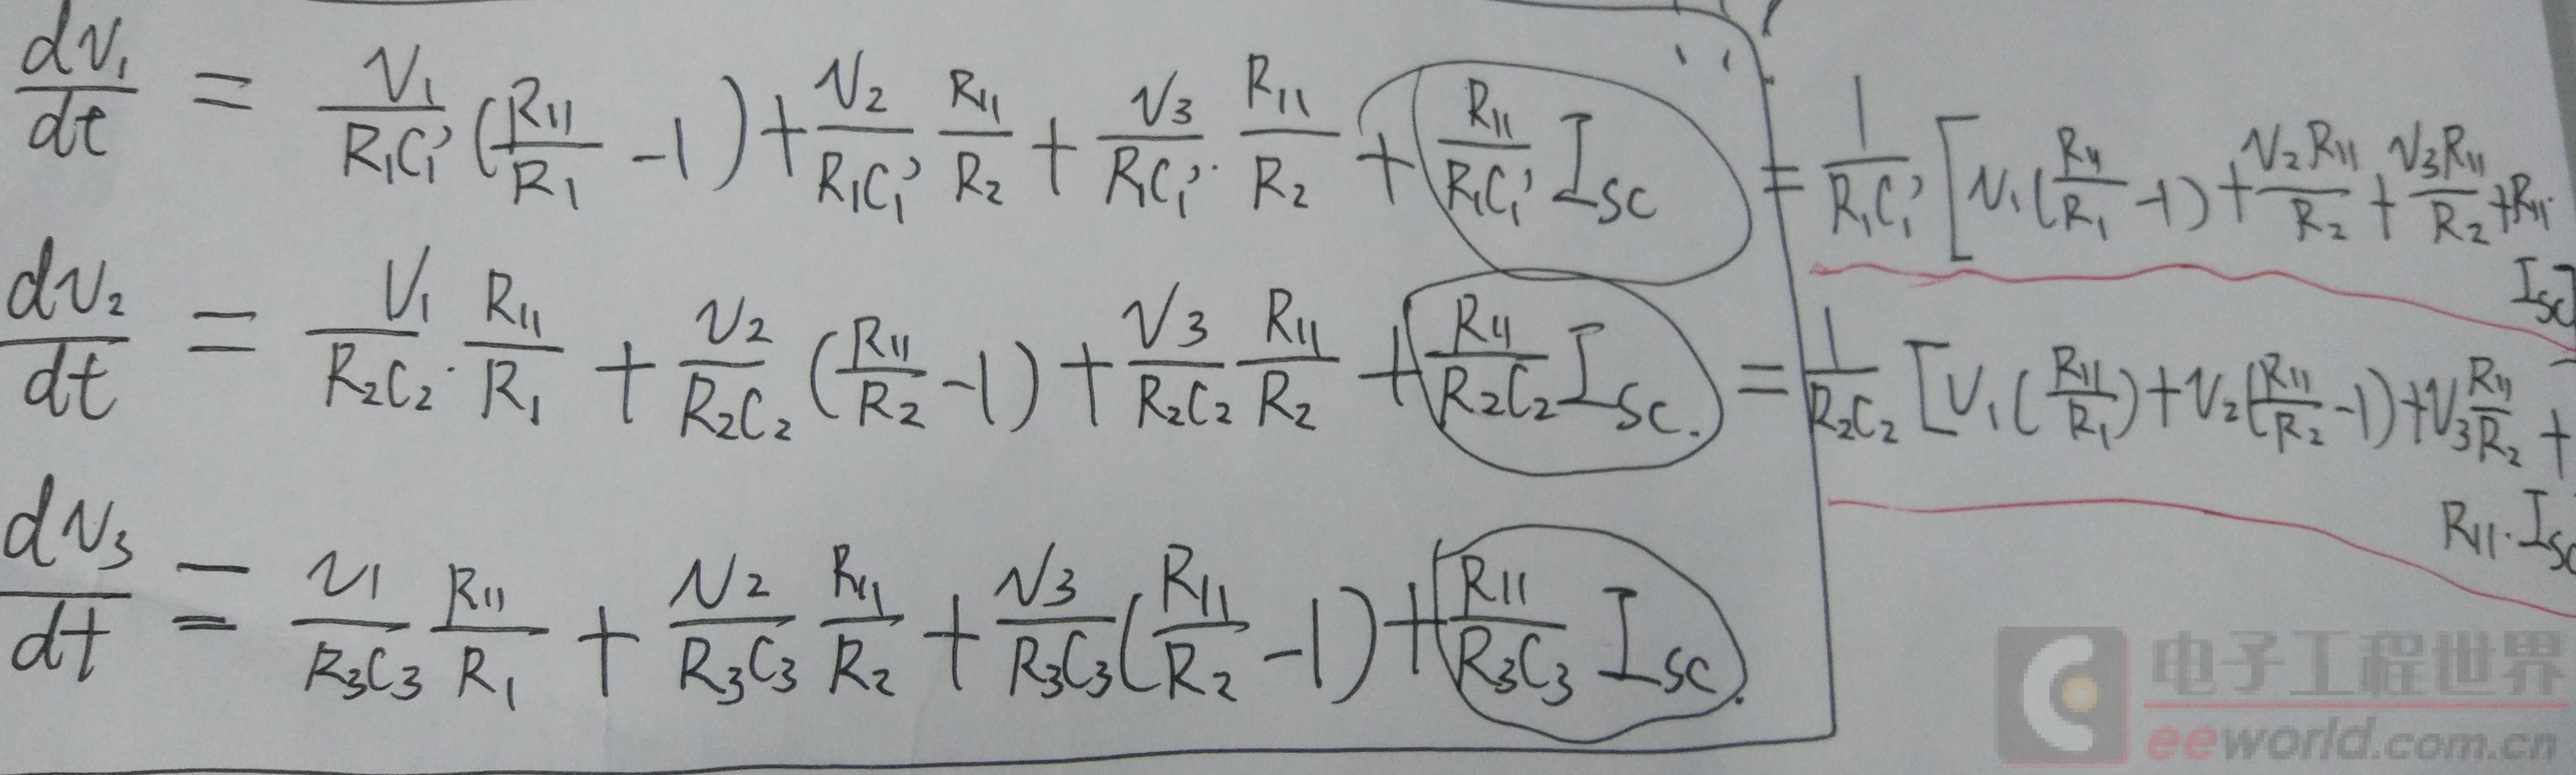 dv₁/dt = v₁/(R₁C₁') (R₁₁/R₁ - 1) + v₂/(R₁C₁') R₁₁/R₂ + v₃/(R₁C₁') · R₁₁/R₂ + R₁₁/(R₁C₁') I_SC = 1/(R₁C₁') [v₁(R₁₁/R₁ - 1) + v₂R₁₁/R₂ + v₃R₁₁/R₂ + R₁₁·
I_SC]
dv₂/dt = v₁/(R₂C₂) · R₁₁/R₁ + v₂/(R₂C₂) (R₁₁/R₂ - 1) + v₃/(R₂C₂) R₁₁/R₂ + R₁₁/(R₂C₂) I_SC. = 1/(R₂C₂) [v₁(R₁₁/R₁) + v₂(R₁₁/R₂ - 1) + v₃ R₁₁/R₂ +
R₁₁·I_SC
dv₃/dt = v₁/(R₃C₃) R₁₁/R₁ + v₂/(R₃C₃) R₁₁/R₂ + v₃/(R₃C₃) (R₁₁/R₂ - 1) + R₁₁/(R₃C₃) I_SC.
电子工程世界
eeworld.com.cn